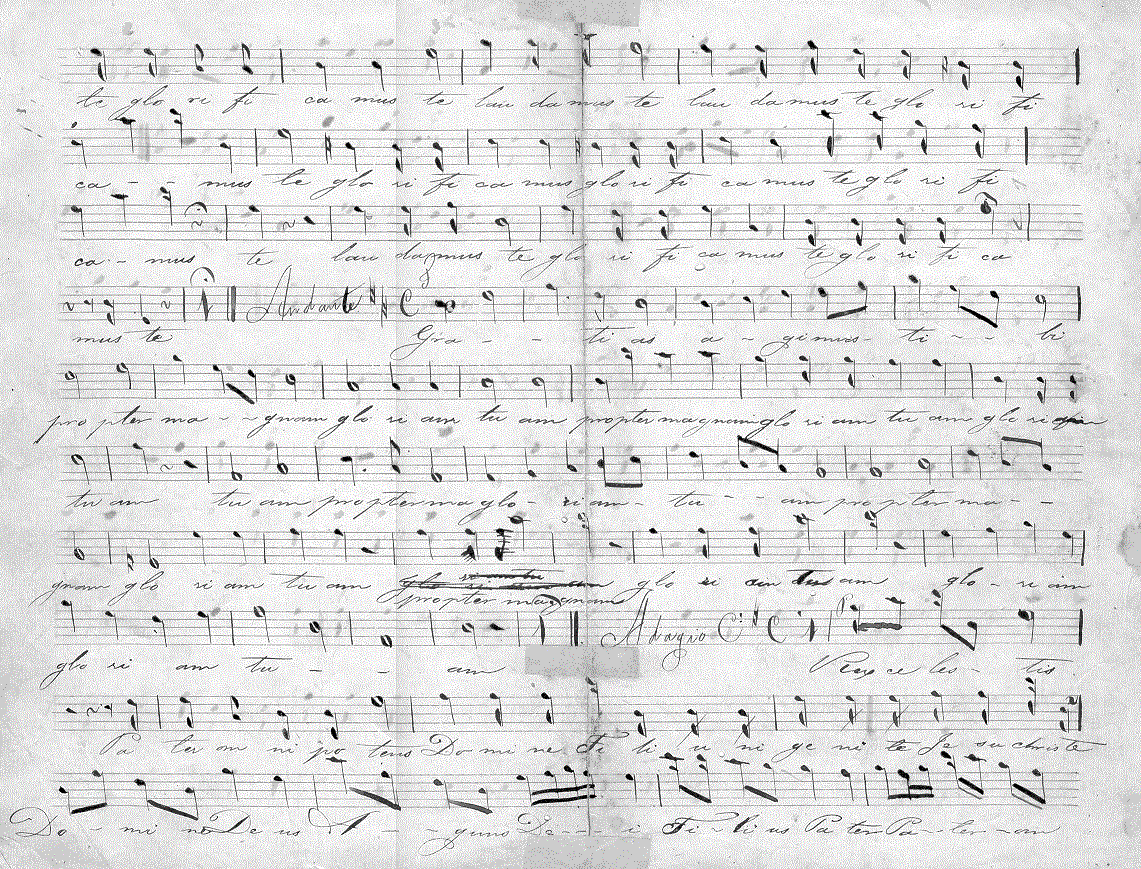 te glo ri fi ca mus te lau da mus te lau da mus te glo ri fi
ca - - mus te glo ri fi ca mus glo ri fi ca mus te glo ri fi
ca - mus te lau da mus te glo ri fi ca mus te glo ri fi ca
Andante
mus te Gra - - ti as a - gi mus - ti - - bi
propter ma - - gnam glo ri am tu am propter magnam glo ri am tu am glo ri
tu am tu am propter ma glo - ri am - tu - - am propter ma - -
gnam glo ri am tu am glo ri am am glo - ri am
propter magnam
Adagio
glo ri am tu - - am Rex ce les - tis
Pa ter om ni po tens Do mi ne Fi li u ni ge ni te Je su christe
Do - mi ne De us A - - gnus De - - - i Fi - li us Pa ter Pa - - ter - om